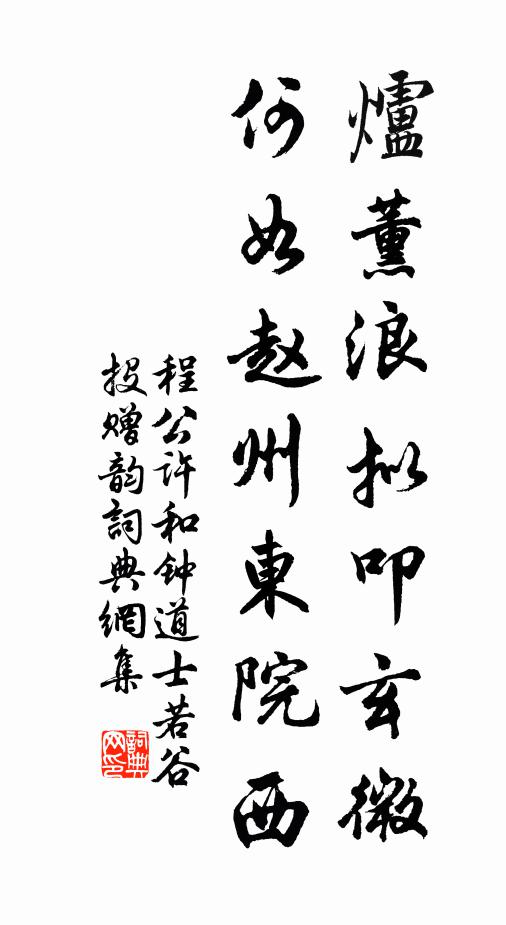 爐薰浪拟叩玄微
何如赵州東院西
程公许和钟道士若谷
投赠韵詞典網集
詞典网印